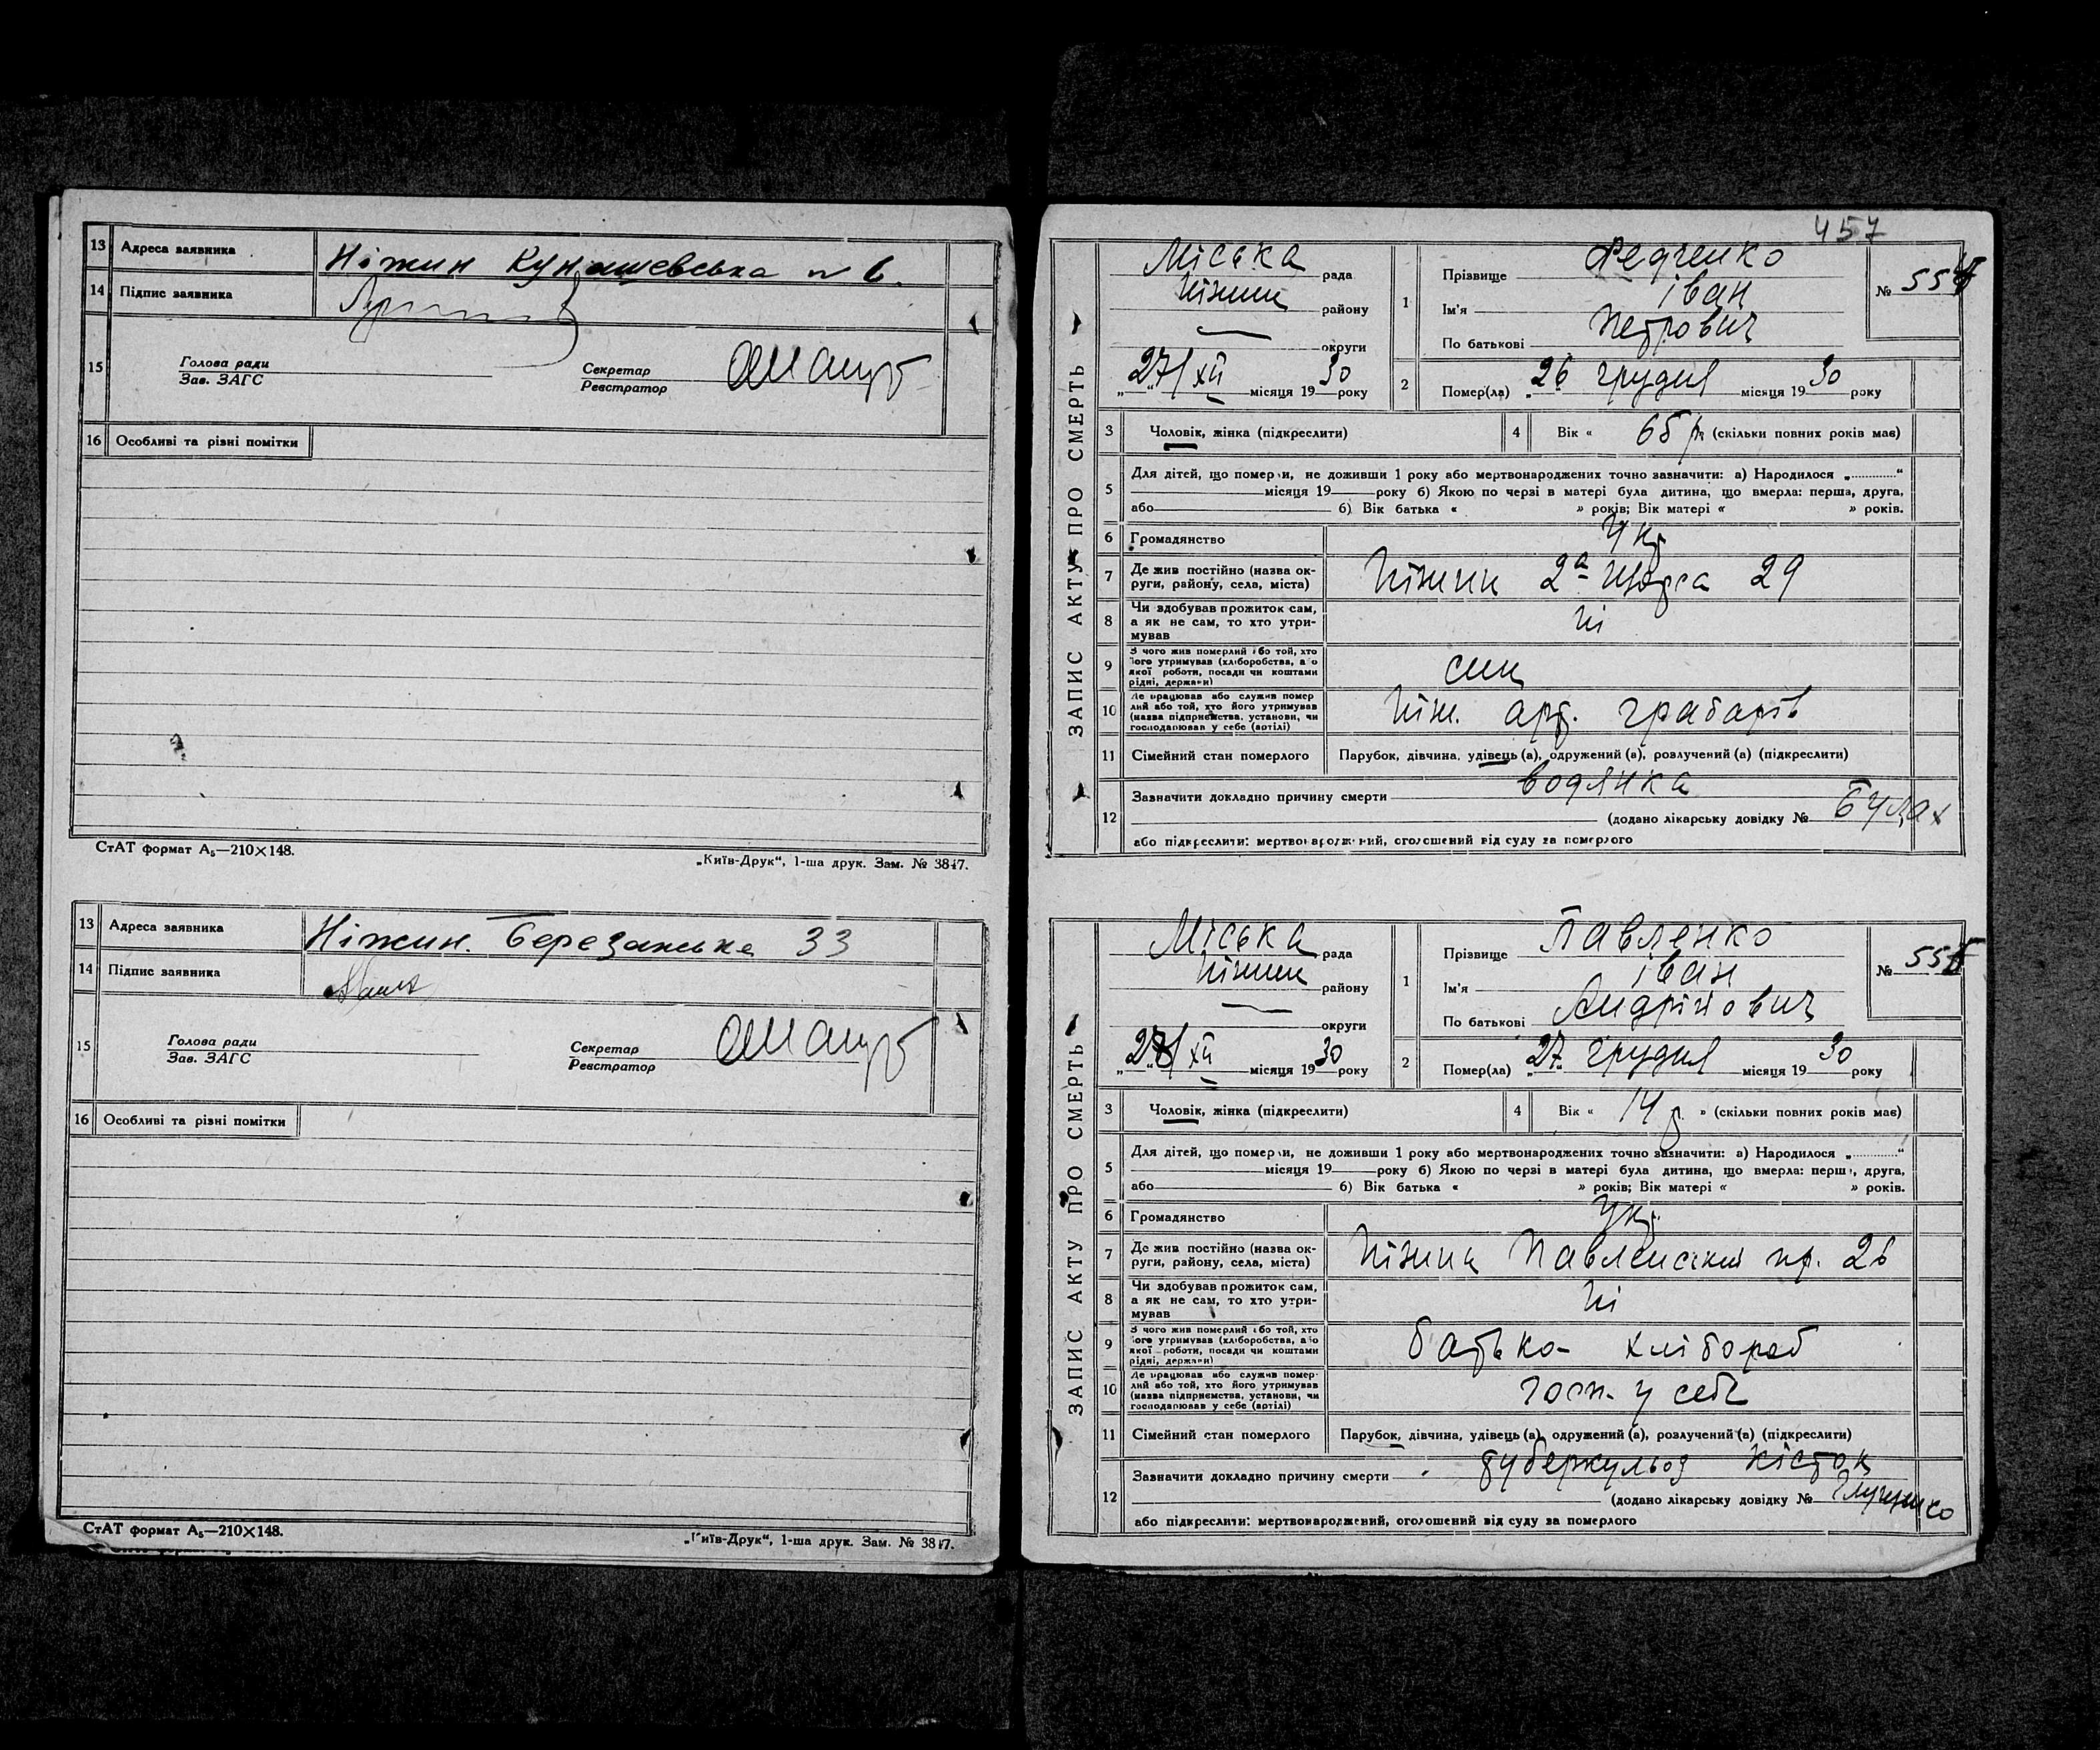 13 Адреса заявника Ніжин Кунашевська № 6.
14 Підпис заявника
15 Голова ради
Зав. ЗАГС
Секретар
Реєстратор
16 Особливі та різні помітки
СтАТ формат А₅—210×148.
„Київ-Друк“, 1-ша друк. Зам. № 3847.
13 Адреса заявника Ніжин. Березанська 33
14 Підпис заявника
15 Голова ради
Зав. ЗАГС
Секретар
Реєстратор
16 Особливі та різні помітки
СтАТ формат А₅—210×148.
„Київ-Друк“, 1-ша друк. Зам. № 3847.
457
ЗАПИС АКТУ ПРО СМЕРТЬ
Міська рада
Ніжин району
округи
27/XII місяця 1930 року
1 Прізвище Федченко
Ім'я Іван
По батькові Петрович
№ 554
2 Помер(ла) 26 грудня місяця 1930 року
3 Чоловік, жінка (підкреслити)
4 Вік « 65 р. (скільки повних років має)
5 Для дітей, що померли, не доживши 1 року або мертвонароджених точно зазначити: а) Народилося „..........“
місяця 19 року б) Якою по черзі в матері була дитина, що вмерла: перша, друга,
або б) Вік батька « » років; Вік матері « » років.
6 Громадянство Укр.
7 Де жив постійно (назва ок-
руги, району, села, міста) Ніжин 2а Щорса 29
8 Чи здобував прожиток сам,
а як не сам, то хто утри-
мував Ні
9 З чого жив померлий або той, хто
його утримував (хліборобства, або
якої роботи, посади чи коштами
рідні, держави) син
10 Де працював або служив помер-
лий або той, хто його утримував
(назва підприємства, установи, чи
господарював у себе (артілі) Ніж. арт. грабарів
11 Сімейний стан померлого Парубок, дівчина, удівець (а), одружений (а), розлучений (а) (підкреслити)
12 Зазначити докладно причину смерти водянка
(додано лікарську довідку № Булах
або підкреслити: мертвонароджений, оголошений від суду за померлого
ЗАПИС АКТУ ПРО СМЕРТЬ
Міська рада
Ніжин району
округи
28/XII місяця 1930 року
1 Прізвище Павленко
Ім'я Іван
По батькові Андрійович
№ 555
2 Помер(ла) „27“ грудня місяця 1930 року
3 Чоловік, жінка (підкреслити)
4 Вік « 14 р. » (скільки повних років має)
5 Для дітей, що померли, не доживши 1 року або мертвонароджених точно зазначити: а) Народилося „..........“
місяця 19 року б) Якою по черзі в матері була дитина, що вмерла: перша, друга,
або б) Вік батька « » років; Вік матері « » років.
6 Громадянство Укр.
7 Де жив постійно (назва ок-
руги, району, села, міста) Ніжин Павленський пр. 26
8 Чи здобував прожиток сам,
а як не сам, то хто утри-
мував Ні
9 З чого жив померлий або той, хто
його утримував (хліборобства, або
якої роботи, посади чи коштами
рідні, держави) батько- хлібороб
10 Де працював або служив помер-
лий або той, хто його утримував
(назва підприємства, установи, чи
господарював у себе (артілі) госп. у себе
11 Сімейний стан померлого Парубок, дівчина, удівець (а), одружений (а), розлучений (а) (підкреслити)
12 Зазначити докладно причину смерти туберкульоз кісток
(додано лікарську довідку №
або підкреслити: мертвонароджений, оголошений від суду за померлого